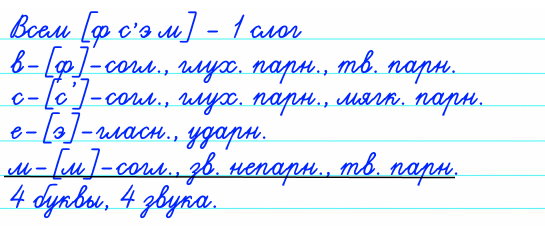 Всем [ф с’э м] – 1 слог
в–[ф]–согл., глух. парн., тв. парн.
с–[с’]–согл., глух. парн., мягк. парн.
е–[э]–гласн., ударн.
м–[м]–согл., зв. непарн., тв. парн.
4 буквы, 4 звука.